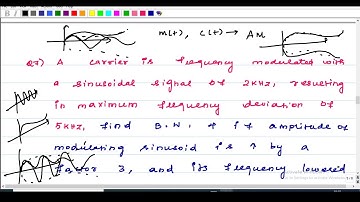 m(t), c(t) → AM
Q7) A carrier is frequency modulated with
a sinusoidal signal of 2KHz, resulting
in maximum frequency deviation of
5KHz, find B.W. if amplitude of
modulating sinusoid is ↑ by a
factor 3, and its frequency lowered